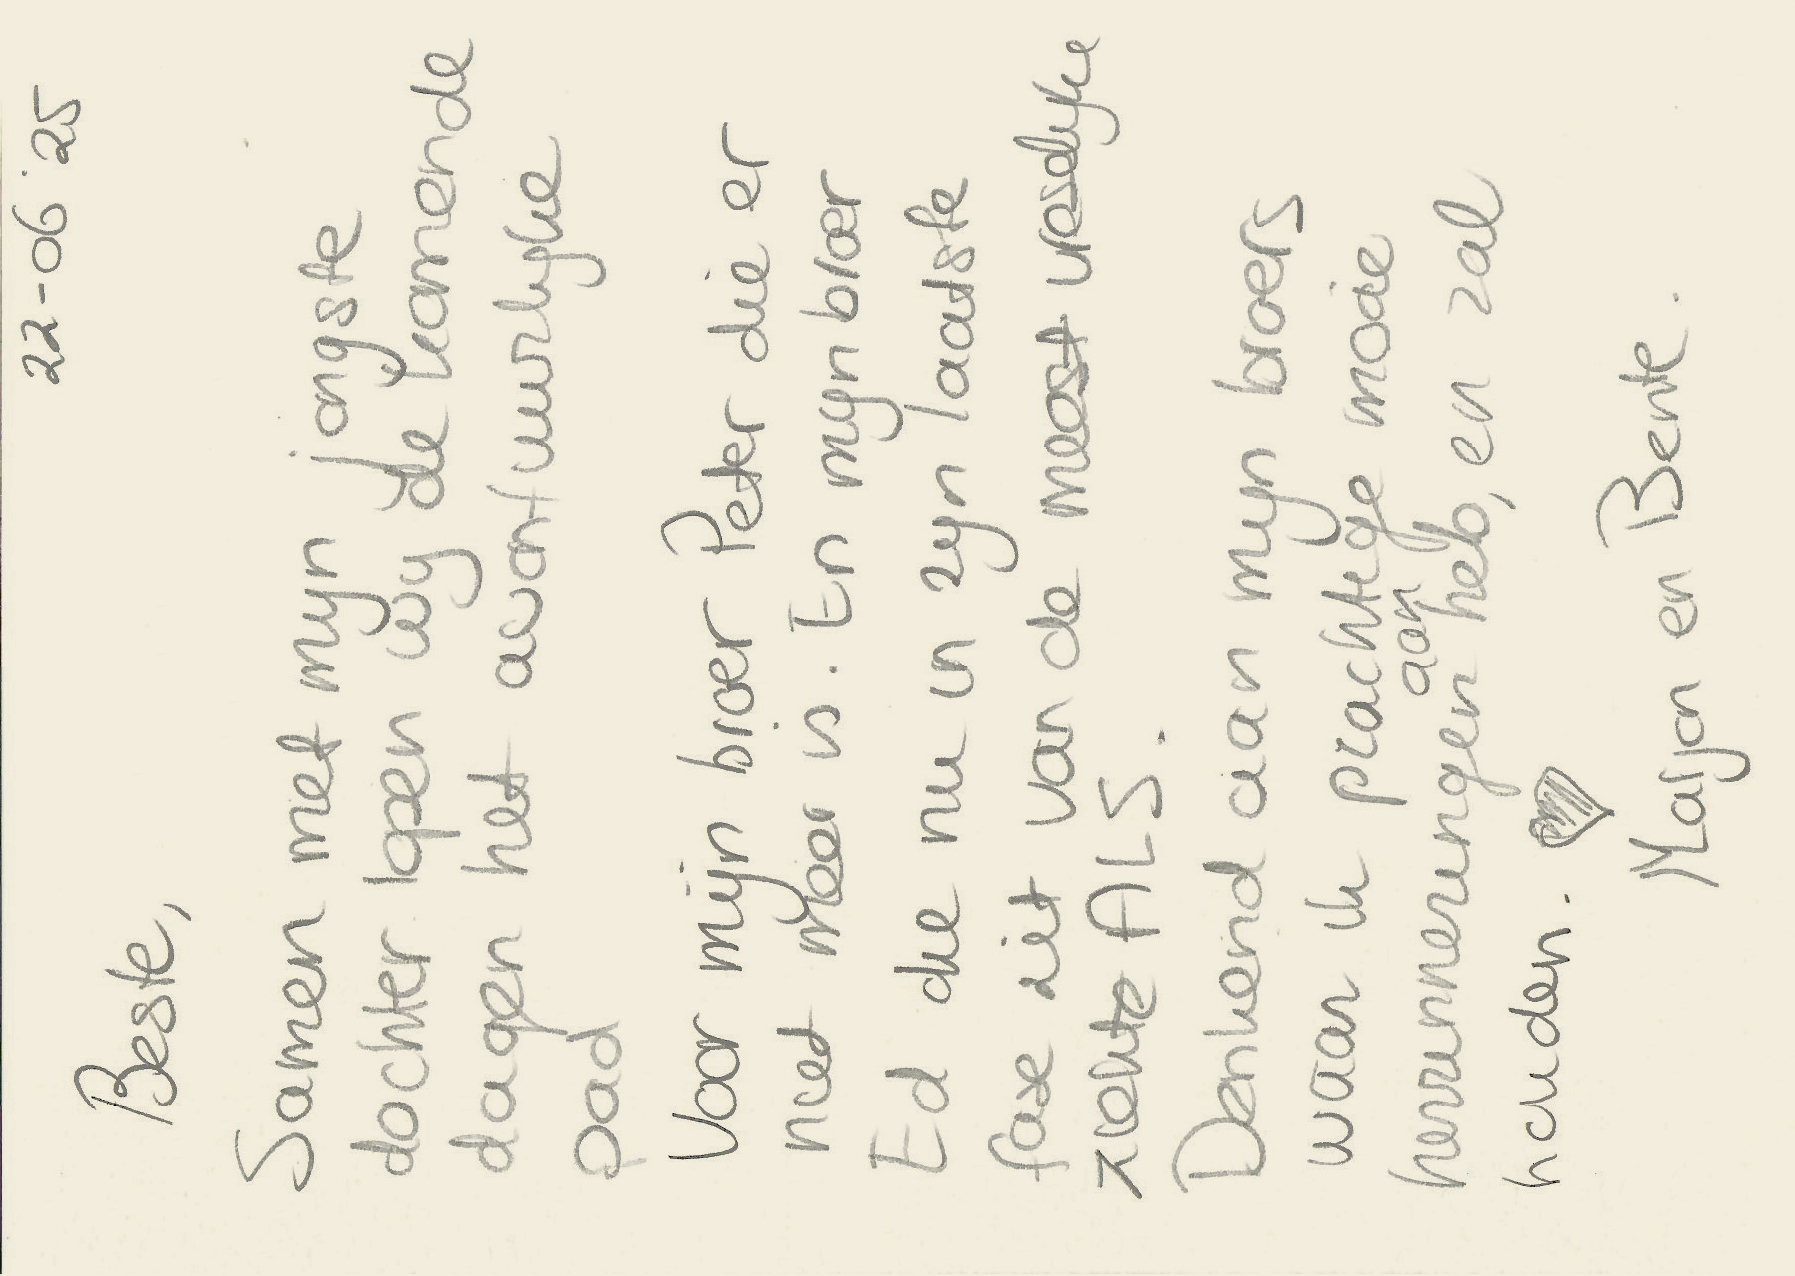 22-06 '25
Beste,
Samen met mijn jongste
dochter lopen wij de komende
dagen het avontuurlijke
pad
Voor mijn broer Peter die er
niet meer is. En mijn broer
Ed die nu in zijn laatste
fase zit van de meest vreselijke
ziekte ALS.
Denkend aan mijn broers
waar ik prachtige mooie
herinneringen aan heb, en zal
houden.
Marjon en Bente.